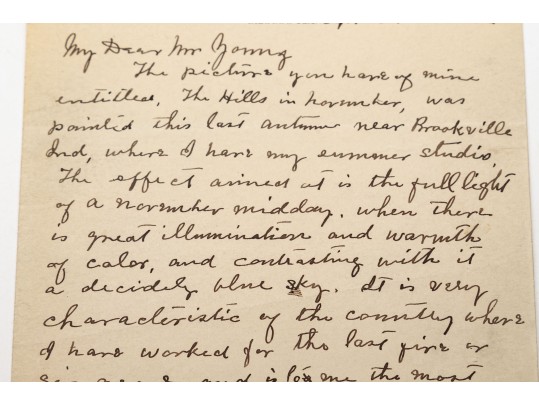 My Dear Mr Young
The picture you have of mine
entitled, The Hills in November, was
painted this last autumn near Brookville
Ind, where I have my summer studio,
The effect aimed at is the full light
of a november midday, when there
is great illumination and warmth
of color, and contrasting with it
a decidely blue sky. It is very
characteristic of the country where
I have worked for the last five or
and is to me the most